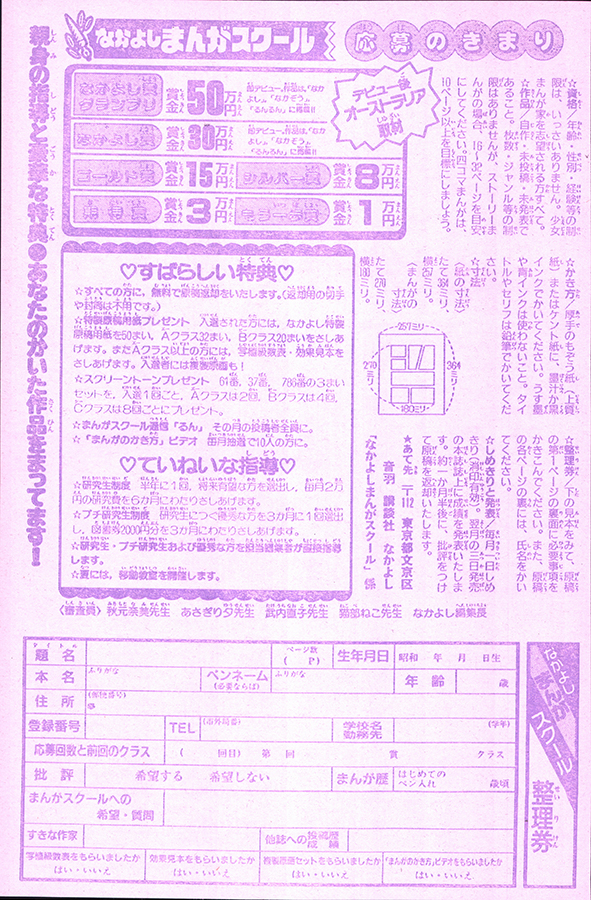 なかよしまんがスクール
応募のきまり
親身の指導と豪華な特典●あなたのかいた作品をまってます!
なかよし賞
グランプリ
賞金50万円
即デビュー。作品は、「なかよし」、「なかぞう」、「るんるん」に掲載!!
なかよし賞
賞金30万円
即デビュー。作品は、「なかよし」、「なかぞう」、「るんるん」に掲載!!
ゴールド賞
賞金15万円
シルバー賞
賞金8万円
賞金3万円
賞金1万円
デビュー後
オーストラリア
取材
☆資格/年齢・性別・経験等の制
限は、いっさいありません。少女
まんが家を志望される方すべて。
☆作品/自作・未投稿・未発表で
あること。枚数・ジャンル等の制
限はありませんが、ストーリーま
んがの場合、16〜30ページを目安
にしてください。四コマまんがは、
10ページ以上を目標にしましょう。
☆かき方/厚手のもぞう紙(上質
紙)またはケント紙に、墨汁か黒
インクでかいてください。うす墨
や青インクは使わないこと。タイ
トルやセリフは鉛筆でかいてくだ
さい。
☆寸法
〈紙の寸法〉
たて364ミリ、
横257ミリ。
〈まんがの
寸法〉
たて270ミリ、
横180ミリ。
257ミリ
270ミリ
364ミリ
180ミリ
☆整理券/下の見本をみて、原稿
の第1ページの裏面に必要事項を
かきこんでください。また、原稿
の各ページの裏には、氏名をかい
てください。
☆しめきりと発表/毎月一日しめ
きり(消印有効)。翌月の三日発売
の本誌誌上に成績を発表いたしま
す。約一か月半後に、批評をつけ
て原稿を返却いたします。
★あて先/〒112 東京都文京区
音羽 講談社 なかよし
「なかよしまんがスクール」係
♡すばらしい特典♡
☆すべての方に、無料で郵便返却をいたします。(返却用の切手
や封筒は不用です。)
☆特製原稿用紙プレゼント 入選された方には、なかよし特製
原稿用紙を50まい、Aクラス32まい、Bクラス20まいをさしあ
げます。またAクラス以上の方には、学植級数表・効果見本を
さしあげます。入選者には複製原画も!
☆スクリーントーンプレゼント 61番、37番、786番の3まい
セットを、入選1回ごと、Aクラスは2回、Bクラスは4回、
Cクラスは8回ごとにプレゼント。
☆まんがスクール通信「るん」 その月の投稿者全員に。
☆「まんがのかき方」ビデオ 毎月抽選で10人の方に。
♡ていねいな指導♡
☆研究生制度 半年に1回、将来有望な方を選出し、毎月2万
円の研究費を6か月にわたりさしあげます。
☆プチ研究生制度 研究生につぐ優秀な方を3か月に1回選出
し、図書券2000円分を3か月にわたりさしあげます。
☆研究生・プチ研究生および優秀な方を担当編集者が直接指導
します。
☆夏には、移動教室を開催します。
〈審査員〉秋元奈美先生 あさぎり夕先生 武内直子先生 猫部ねこ先生 なかよし編集長
なかよしまんがスクール 整理券
題名 ページ数( P) 生年月日 昭和 年 月 日生
本名 ふりがな ペンネーム(必要ならば) ふりがな 年齢 歳
住所 (郵便番号)
登録番号 TEL (市外局番) 学校名 勤務先 (学年)
応募回数と前回のクラス ( 回目) 第 回 賞 クラス
批評 希望する 希望しない まんが歴 はじめてのペン入れ 歳頃
まんがスクールへの
希望・質問
すきな作家 他誌への投稿歴 成績
学植級数表をもらいましたか 効果見本をもらいましたか 複製原画セットをもらいましたか 「まんがのかき方」ビデオをもらいましたか
はい・いいえ はい・いいえ はい・いいえ はい・いいえ